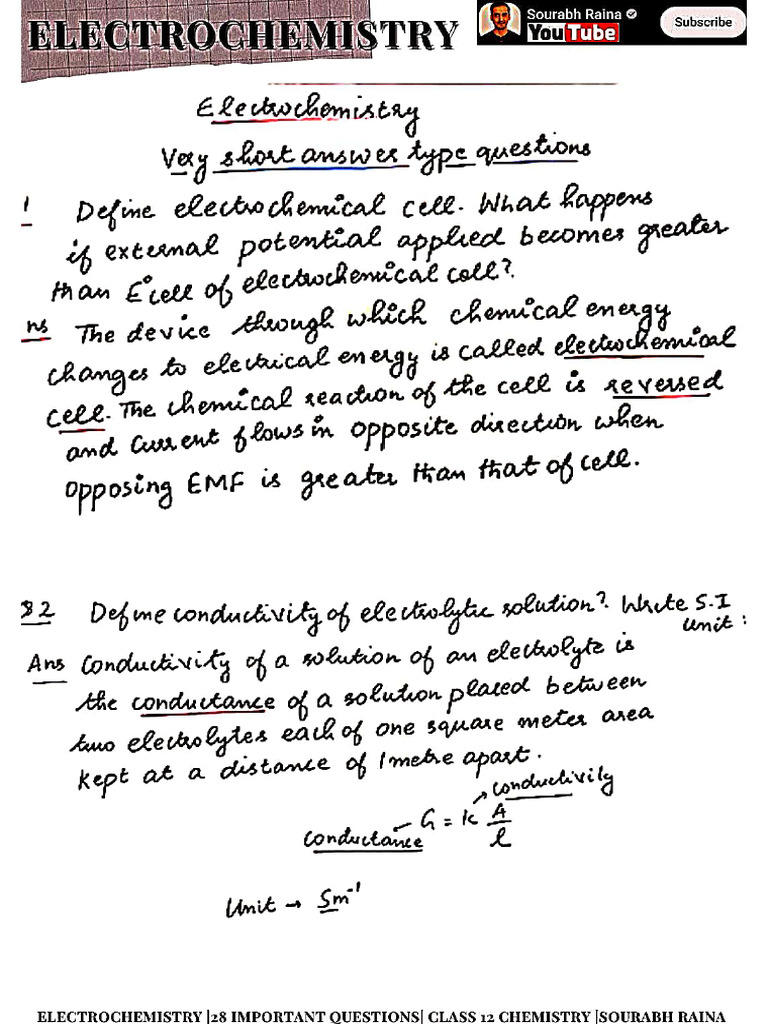 ELECTROCHEMISTRY
Sourabh Raina
YouTube
Subscribe
Electrochemistry
Very short answer type questions
1 Define electrochemical cell. What happens
if external potential applied becomes greater
than E°cell of electrochemical cell?
ns The device through which chemical energy
changes to electrical energy is called electrochemical
cell. The chemical reaction of the cell is reversed
and current flows in opposite direction when
opposing EMF is greater than that of cell.
2 Define conductivity of electrolytic solution? Write S.I
unit:
Ans Conductivity of a solution of an electrolyte is
the conductance of a solution placed between
two electrolytes each of one square meter area
kept at a distance of 1 metre apart.
conductivity
conductance G = K A/l
Unit → Sm⁻¹
ELECTROCHEMISTRY |28 IMPORTANT QUESTIONS| CLASS 12 CHEMISTRY |SOURABH RAINA